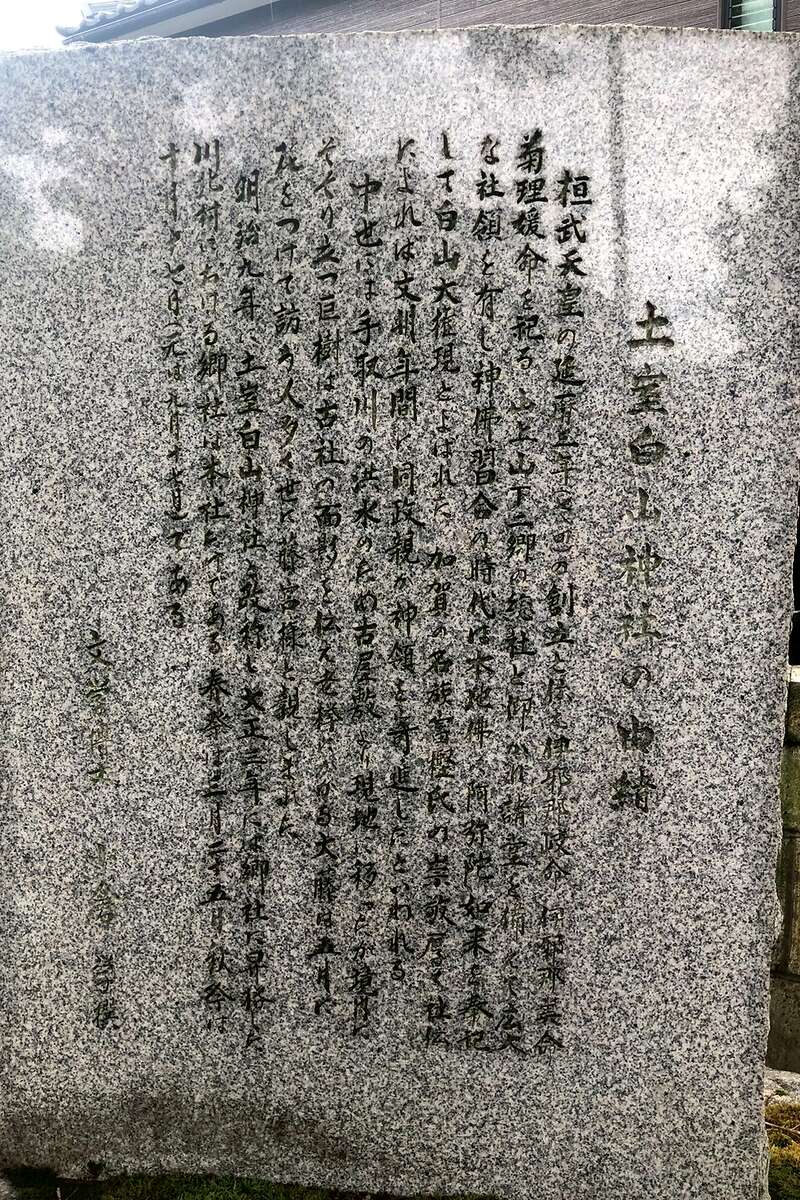 土室白山神社の由緒
桓武天皇の延暦三年の創立と伝え伊邪那岐命伊邪那美命
菊理媛命を祀る 山上山下二郷の総社と仰がれ諸堂を備え広大
な社領を有し神佛習合の時代は本地佛の阿弥陀如来を奉祀
して白山大権現とよばれた 加賀の名族富樫氏の崇敬厚く社伝
によれば文明年間に同政親が神領を寄進したといわれる
中世には手取川の洪水のため古屋敷より現地に移ったが境内に
そびり立つ巨樹は古社の面影を伝え老松にかかる大藤は五月に
花をつけて訪う人多く世に藤宮様と親しまれた
明治九年に土室白山神社と改称し大正三年には郷社に昇格した
川北村における郷社は本社だけである 春祭は三月二十五日秋祭は
十月十七日(元は九月十七日)である
文学博士 学撰